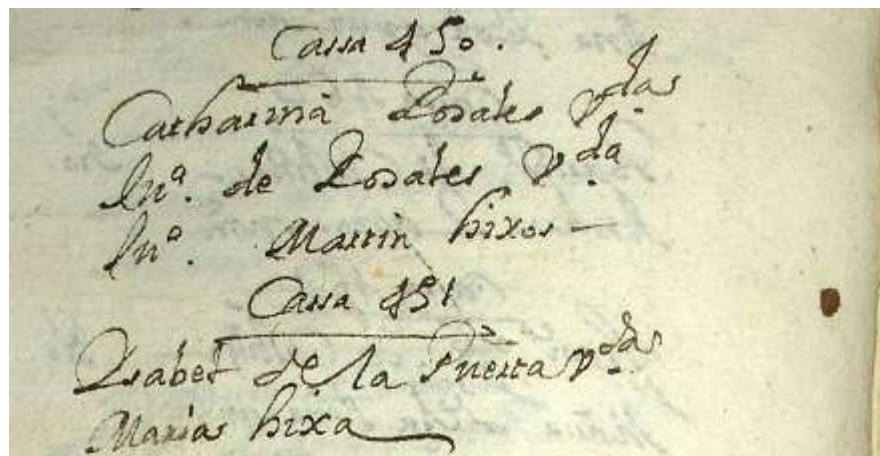 Cassa 450.
Catharina Rosales vda
Inª. de Rosales vda
Inº. Martin hixos
Cassa 451
Isabel de la Puerta vda
Maria hixa